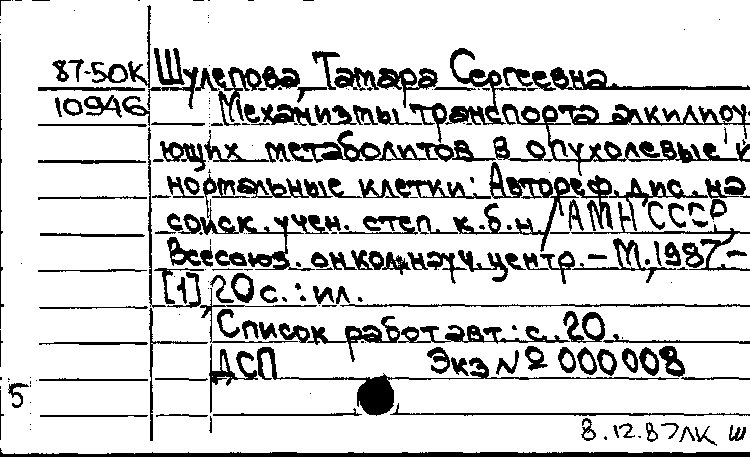 87-50К Шулепова, Тамара Сергеевна.
10946 Механизмы транспорта алкилиру-
ющих метаболитов в опухолевые и
нормальные клетки: Автореф. дис. на
соиск. учен. степ. к.б.н. /АМН СССР,
Всесоюз. онкол. науч. центр. – М., 1987. –
[1], 20 с. : ил.
Список работ авт.: с. 20.
ДСП Экз № 000008
5
8.12.87 ЛК Ш